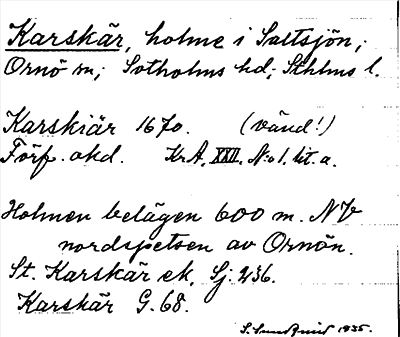 Karskär, holme i Saltsjön;
Ornö sn; Sotholms hd; Sthlms l.
Karskiär 1670. (vänd!)
Förf. okd. Kr.A. XXII. N:o 1. lit. a.
Holmen belägen 600 m. NV
nordspetsen av Ornön.
St. Karskär ek, Sj. 236.
Karskär G. 68.
S. 1935.